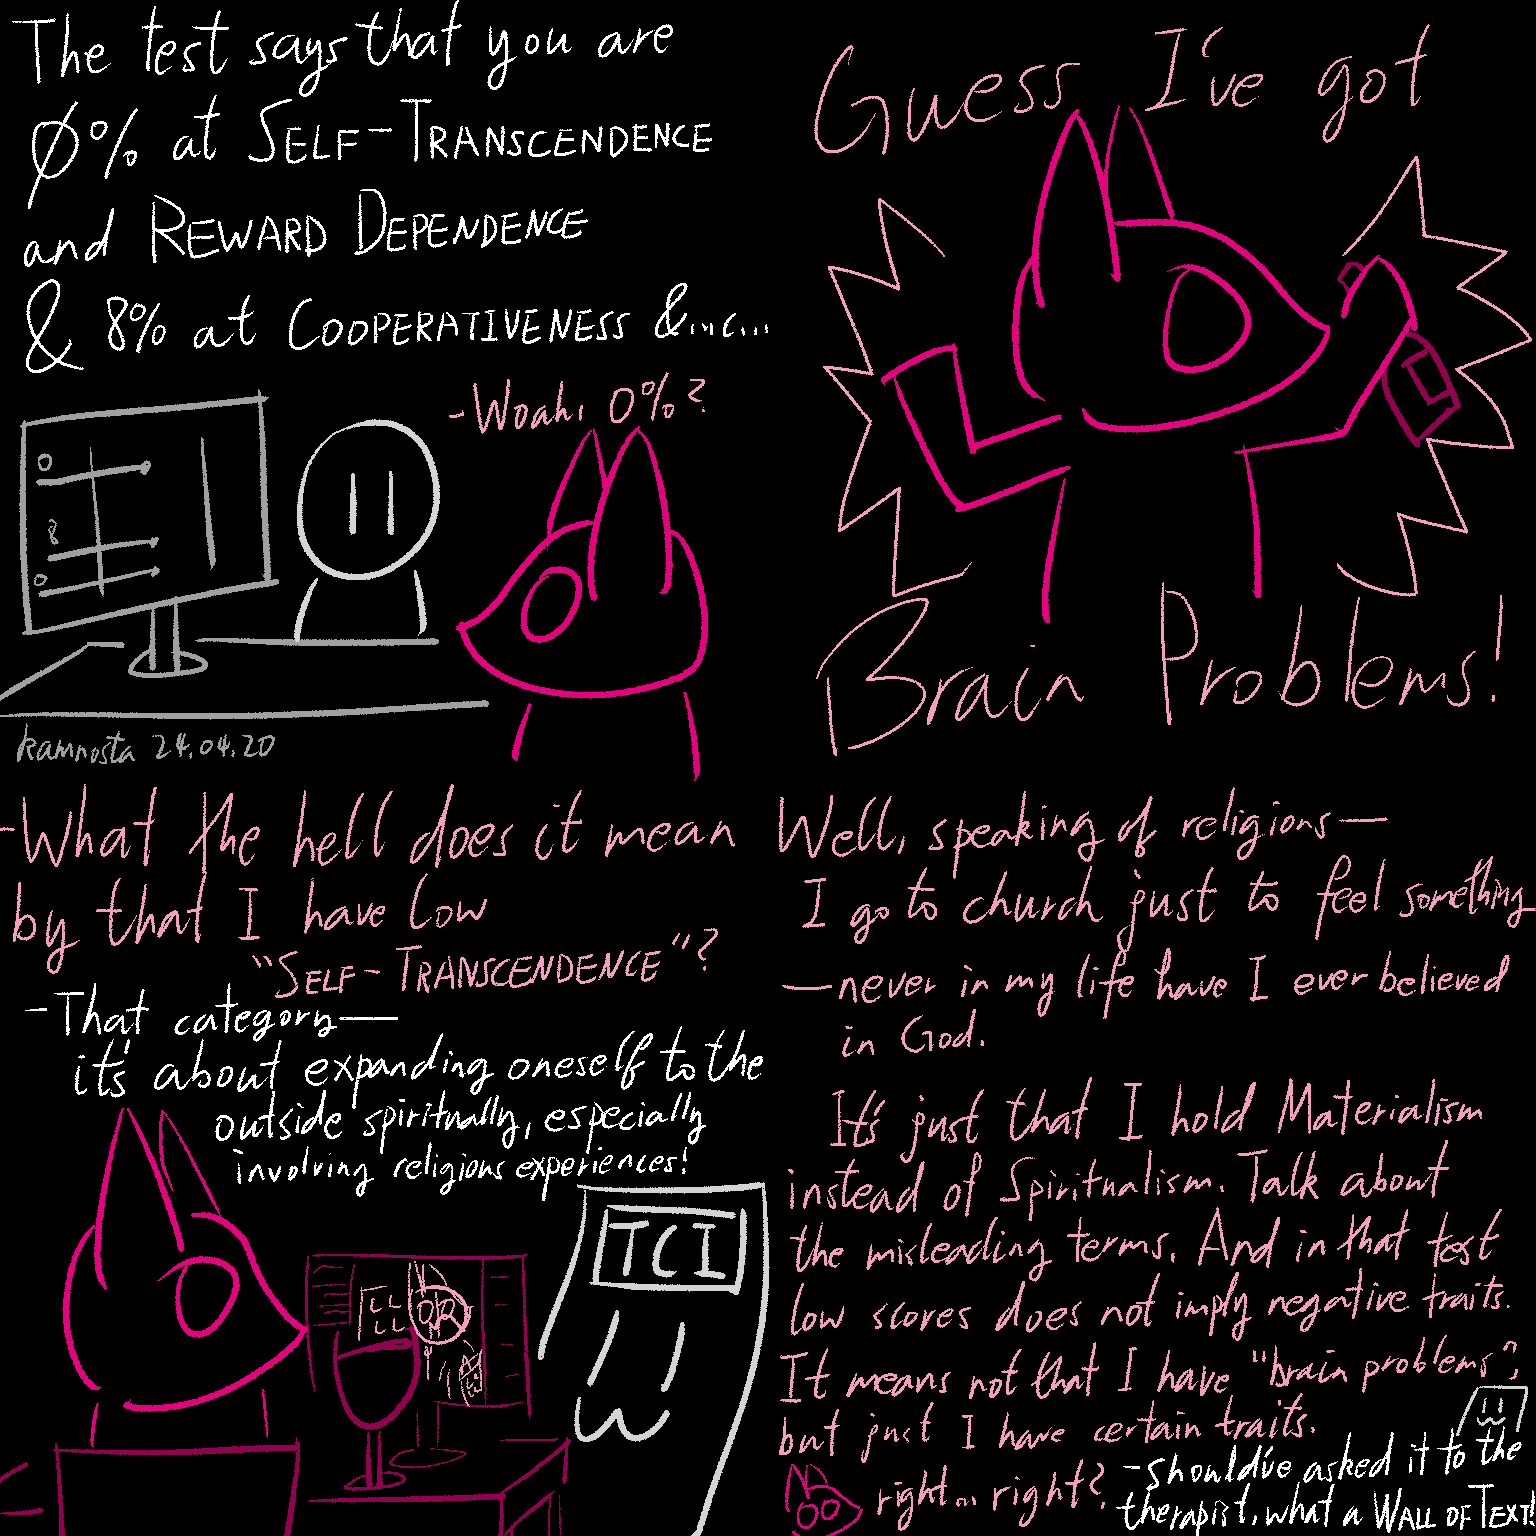 The test says that you are
0% at SELF-TRANSCENDENCE
and REWARD DEPENDENCE
& 8% at COOPERATIVENESS &...
-Woah, 0%?
0
8
0
kamnosta 24.04.20
Guess I've got
Brain Problems!
-What the hell does it mean
by that I have low
"SELF-TRANSCENDENCE"?
-That category—
it's about expanding oneself to the
outside spiritually, especially
involving religious experiences!
TCI
Well, speaking of religions—
I go to church just to feel something
—never in my life have I ever believed
in God.
It's just that I hold Materialism
instead of Spiritualism. Talk about
the misleading terms. And in that test
low scores does not imply negative traits.
It means not that I have "brain problems",
but just I have certain traits.
right... right?
-should've asked it to the
therapist, what a WALL OF TEXT!